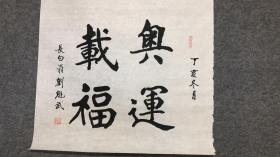 丁亥冬月
奥運
載福
長白翁劉魁武